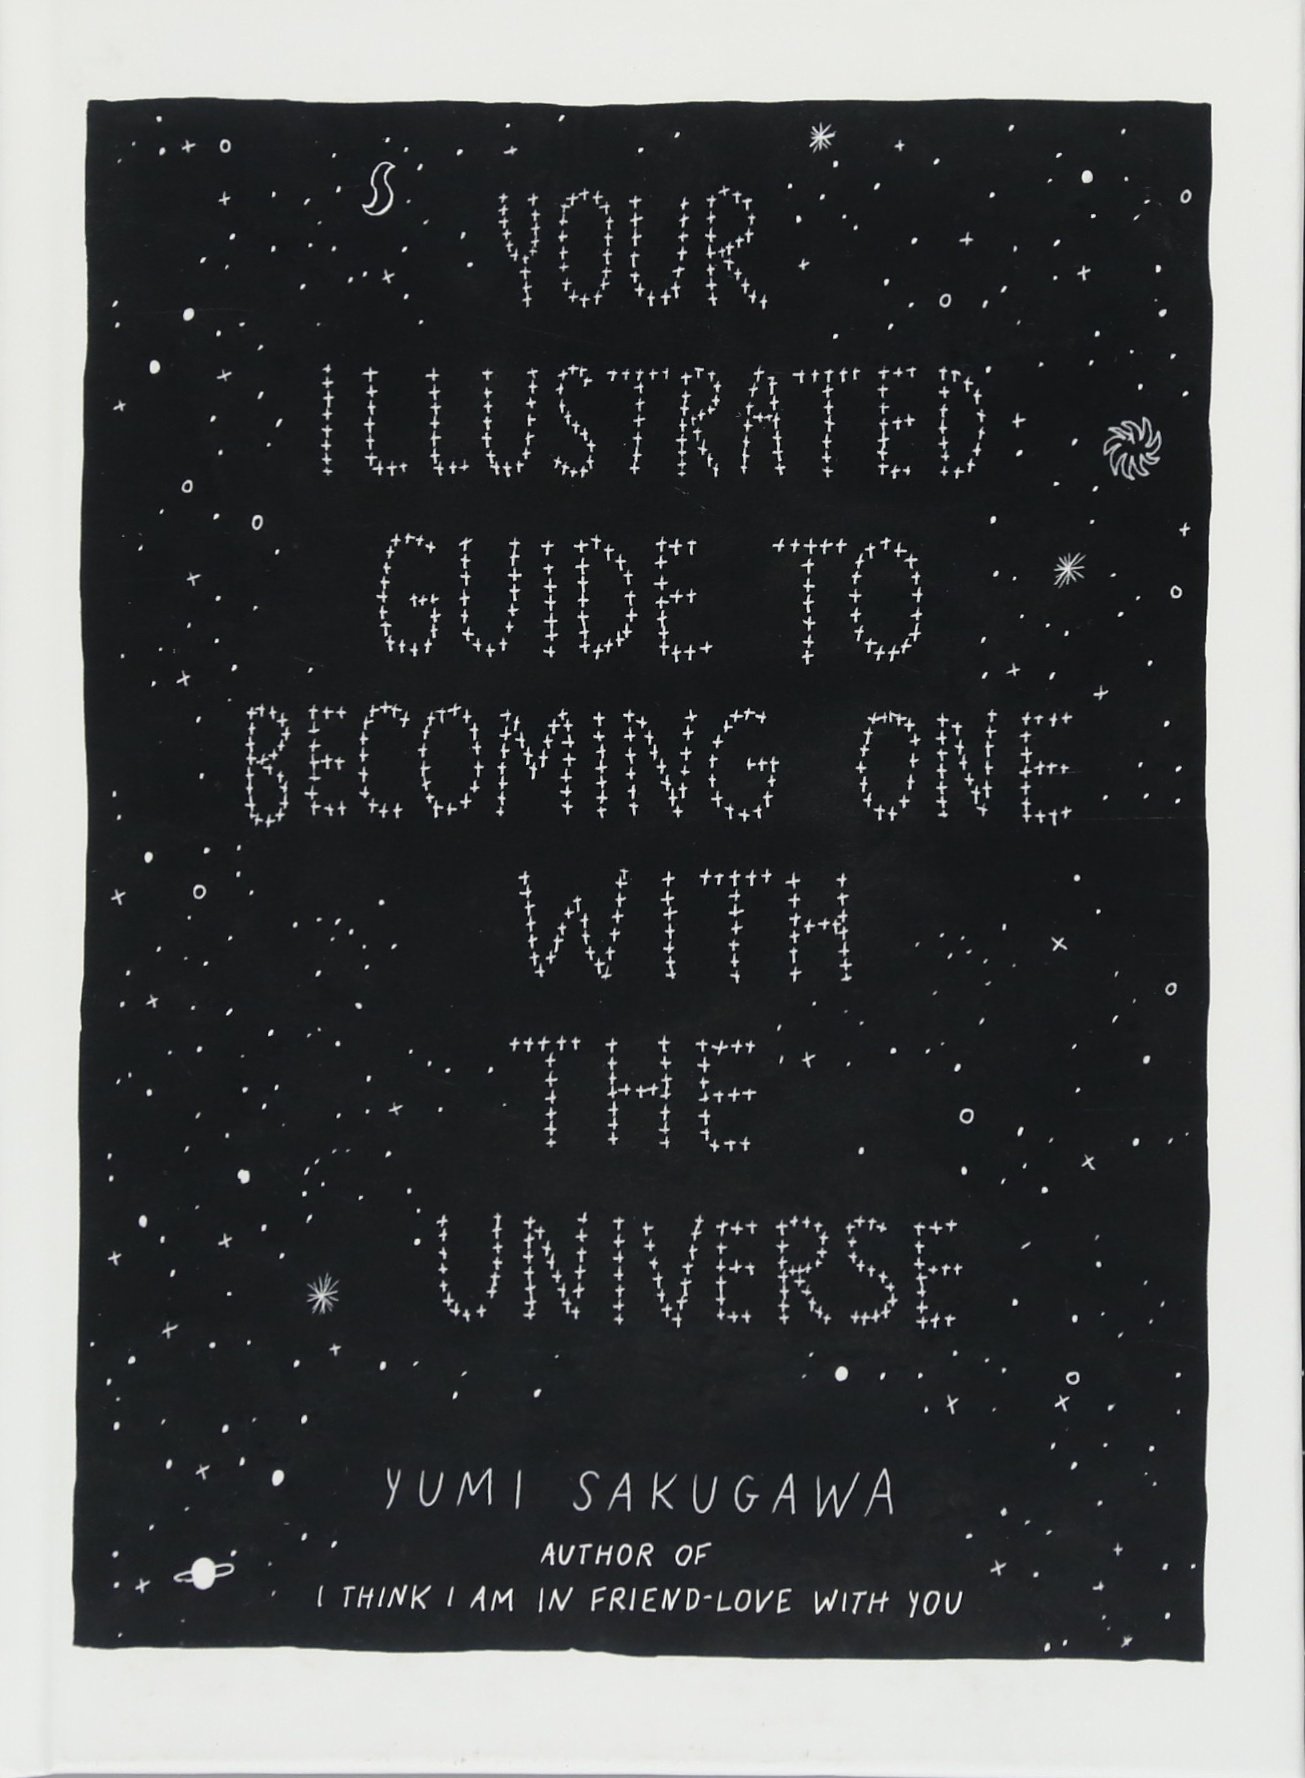 YOUR
ILLUSTRATED
GUIDE TO
BECOMING ONE
WITH
THE
UNIVERSE
YUMI SAKUGAWA
AUTHOR OF
I THINK I AM IN FRIEND-LOVE WITH YOU